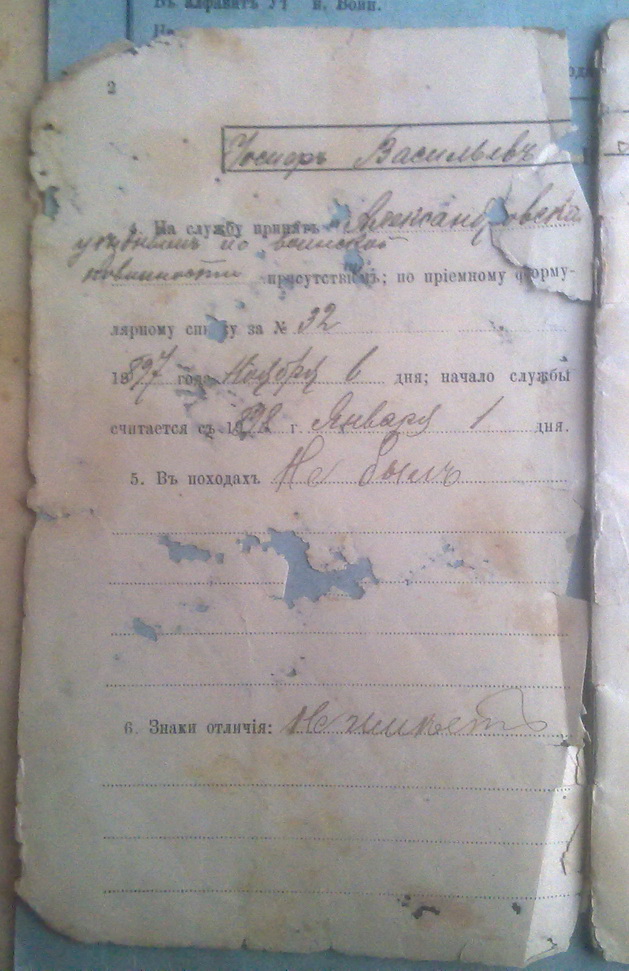 въ Алфавитъ
2
Іосифъ Васильевъ
4. На службу принятъ Александровскимъ
уѣзднымъ по воинской
повинности присутствіемъ; по пріемному форму-
лярному списку за № 32
1897 года Ноября 6 дня; начало службы
считается съ 1898 г. Января 1 дня.
5. Въ походахъ Не былъ
6. Знаки отличія: Не имѣетъ